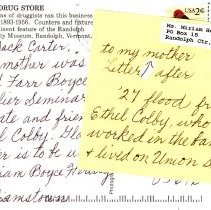 DRUG STORE
s of druggists ran this business
1893-1956. Counters and fixture
inent feature of the Randolph
ty Museum, Randolph, Vermont.
Jack Carter,
mother was
Farr Boyce
lier Seminar
ate and frie
Colby. He
er is to be u
iam Boyce Her
amstown
USA
Ms. Miriam He
PO Box 15
Randolph Ctr,
to my mother
letter after
'27 flood fr
Ethel Colby, who
worked in the Farm
& lived on Union S